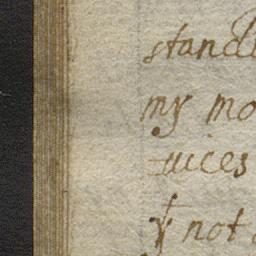 stand
my mo
uices
yt not